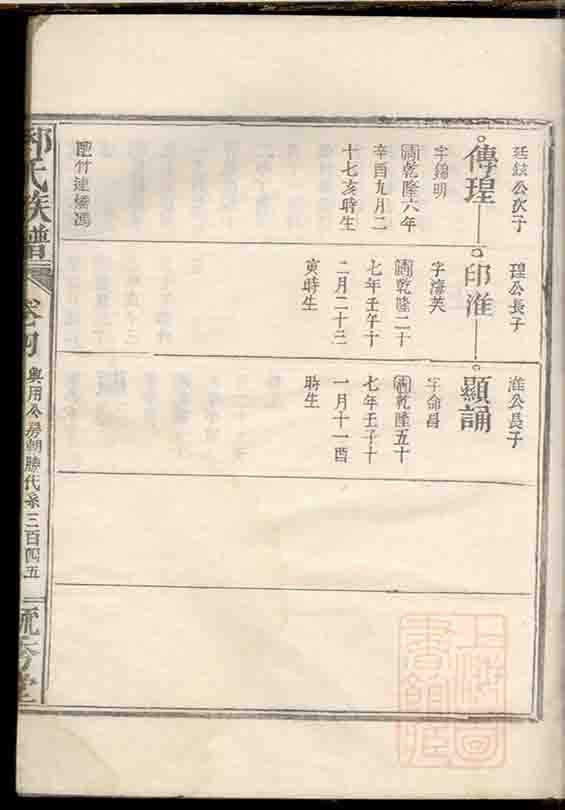 廷鋐公次子
傳理
字錫明
清乾隆六年
辛酉九月二
十七亥時生
理公長子
印淮
字濤英
清乾隆二十
七年壬午十
二月二十三
寅時生
淮公長子
顯誦
字命昌
清乾隆五十
七年壬子十
一月十一酉
時生
氏族譜
卷四
與用公房朝勝代系
三百四五
毓秀堂
上海圖
書館藏